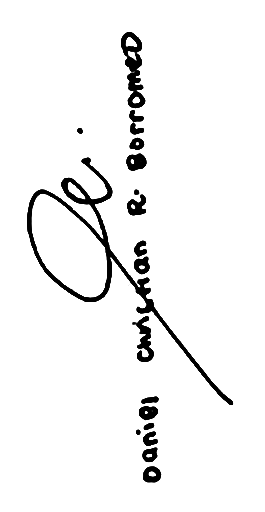 Daniel Christian R. Borromeo